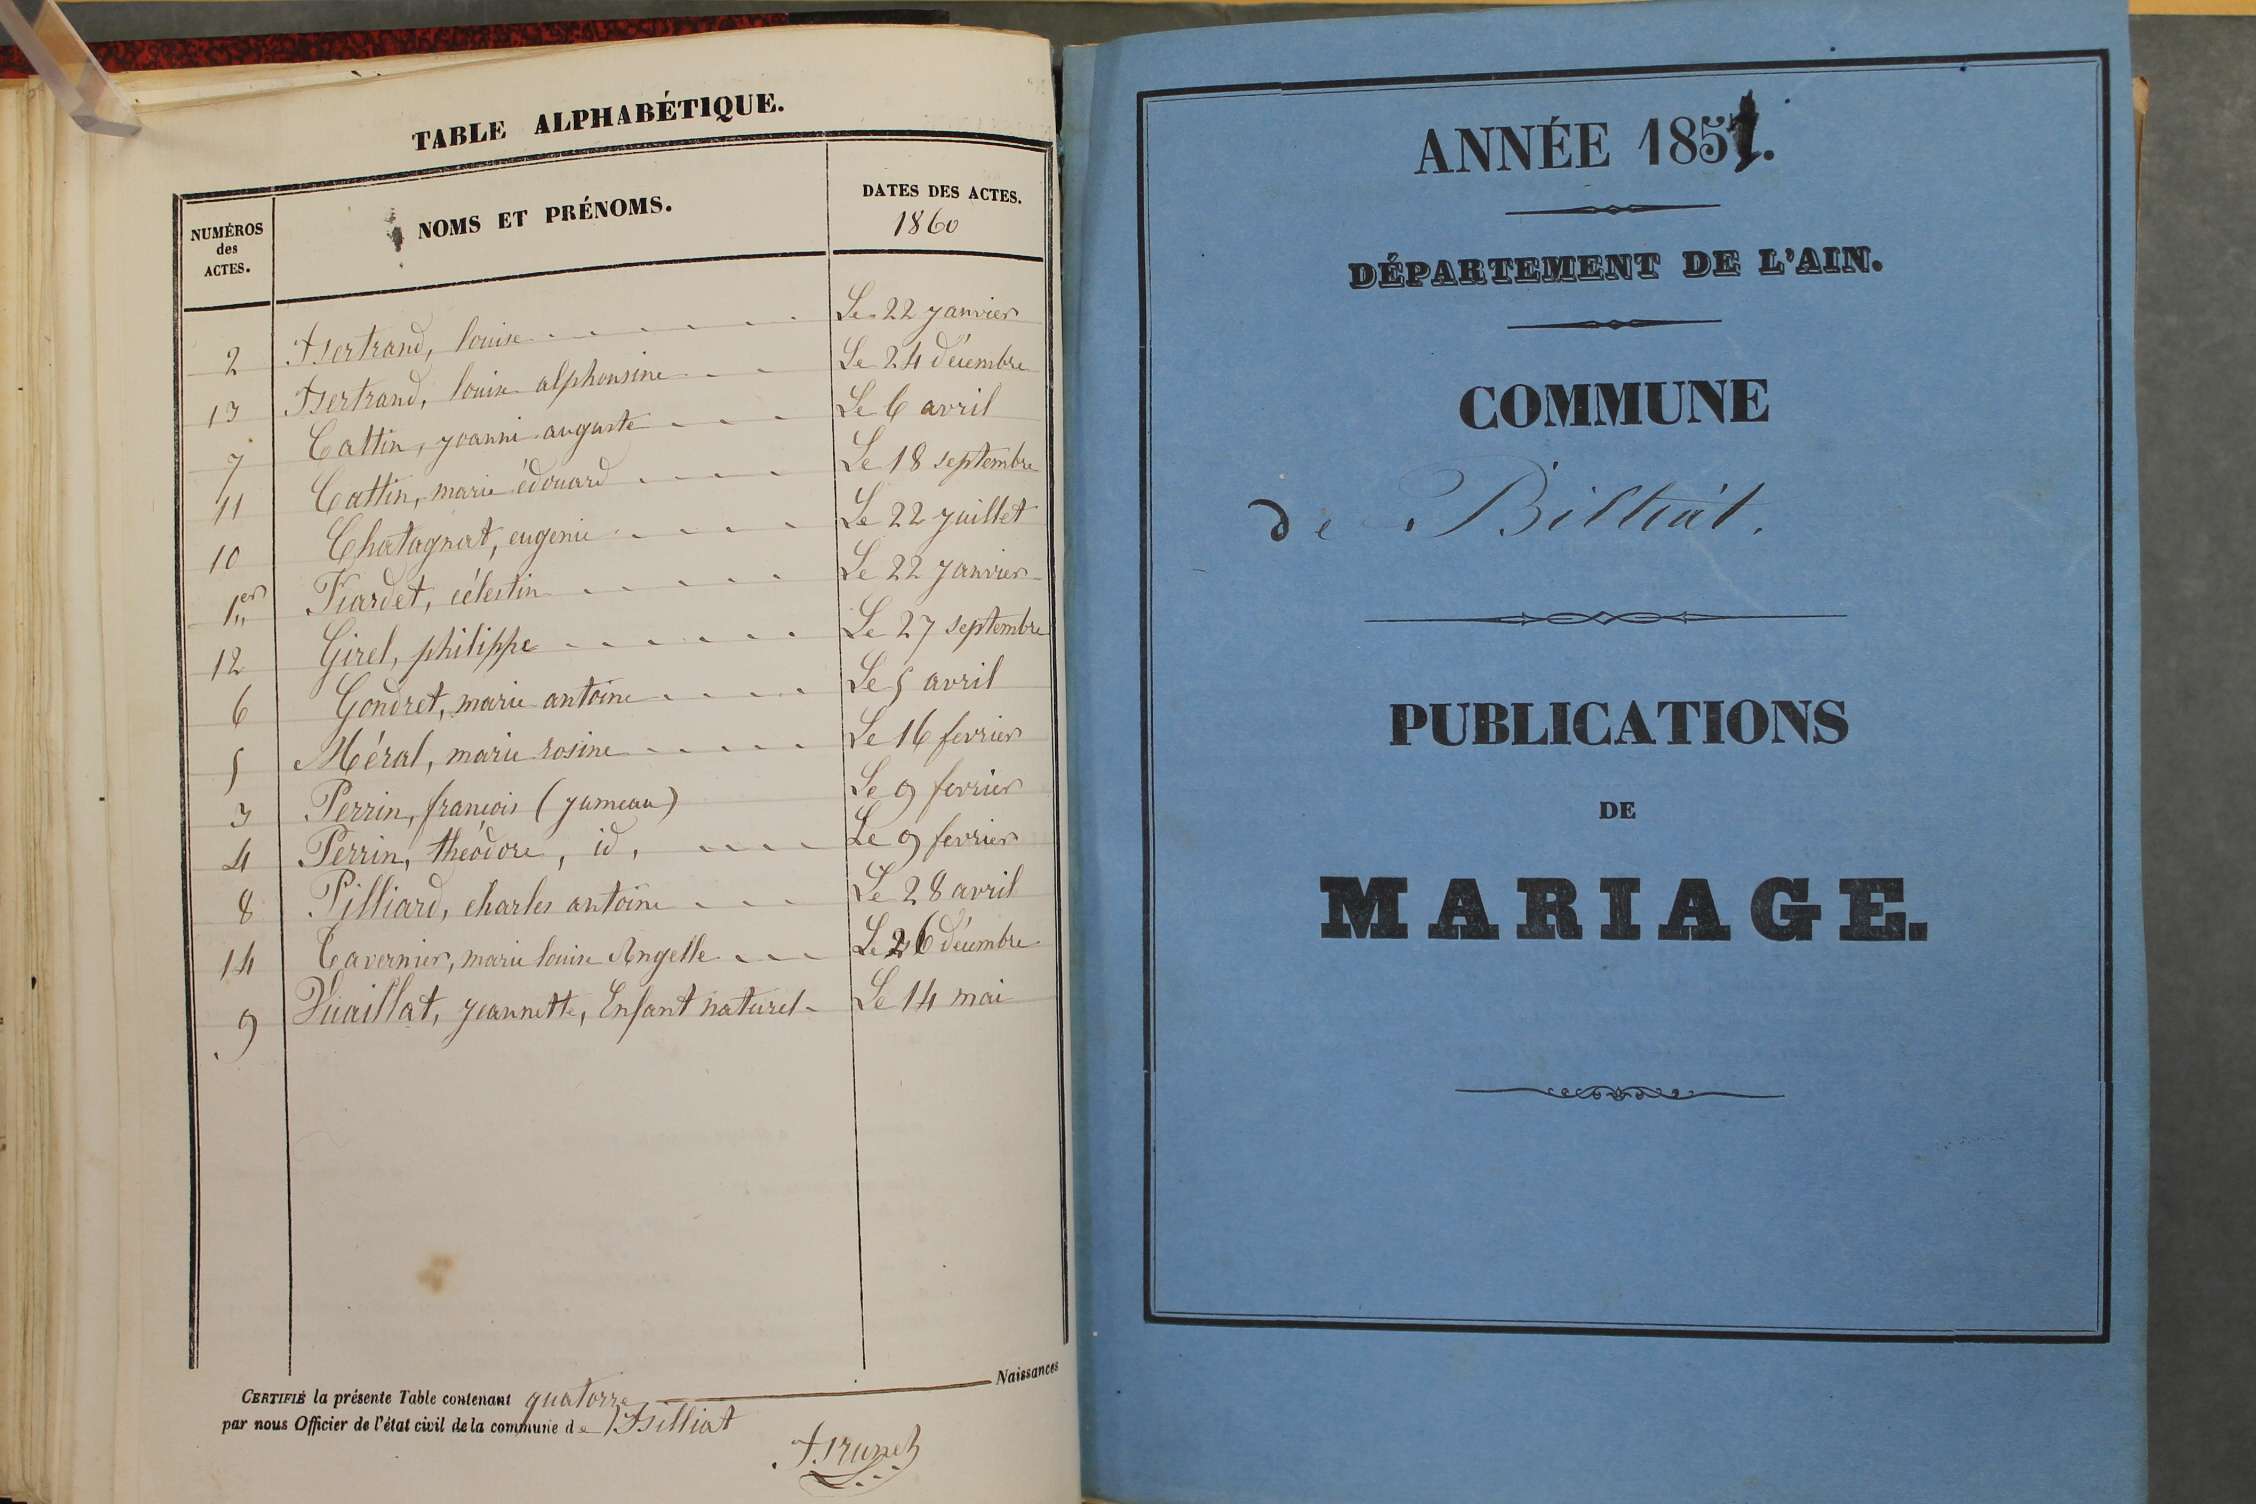 TABLE ALPHABÉTIQUE.
NUMÉROS des ACTES.
NOMS ET PRÉNOMS.
DATES DES ACTES.
1860
2 Bertrand, louise Le 22 janvier
13 Bertrand, louise alphonsine Le 24 décembre
7 Cattin, joanni auguste Le 6 avril
11 Cattin, marie édouard Le 18 septembre
10 Chatagnat, eugenie Le 22 juillet
1er Fiardet, célestin Le 22 janvier
12 Girel, philippe Le 27 septembre
6 Gondret, marie antoine Le 5 avril
5 Méral, marie rosine Le 16 fevrier
3 Perrin, françois (jumeau) Le 9 fevrier
4 Perrin, théodore, id, Le 9 fevrier
8 Pilliard, charles antoine Le 28 avril
14 Tavernier, marie louise Angelle Le 26 décembre
9 Vuaillat, jeannette, Enfant naturel Le 14 mai
CERTIFIÉ la présente Table contenant quatorze Naissances
par nous Officier de l'état civil de la commune de Billiat
Brunet
ANNÉE 1851.
DÉPARTEMENT DE L'AIN.
COMMUNE
de Billiat.
PUBLICATIONS
DE
MARIAGE.